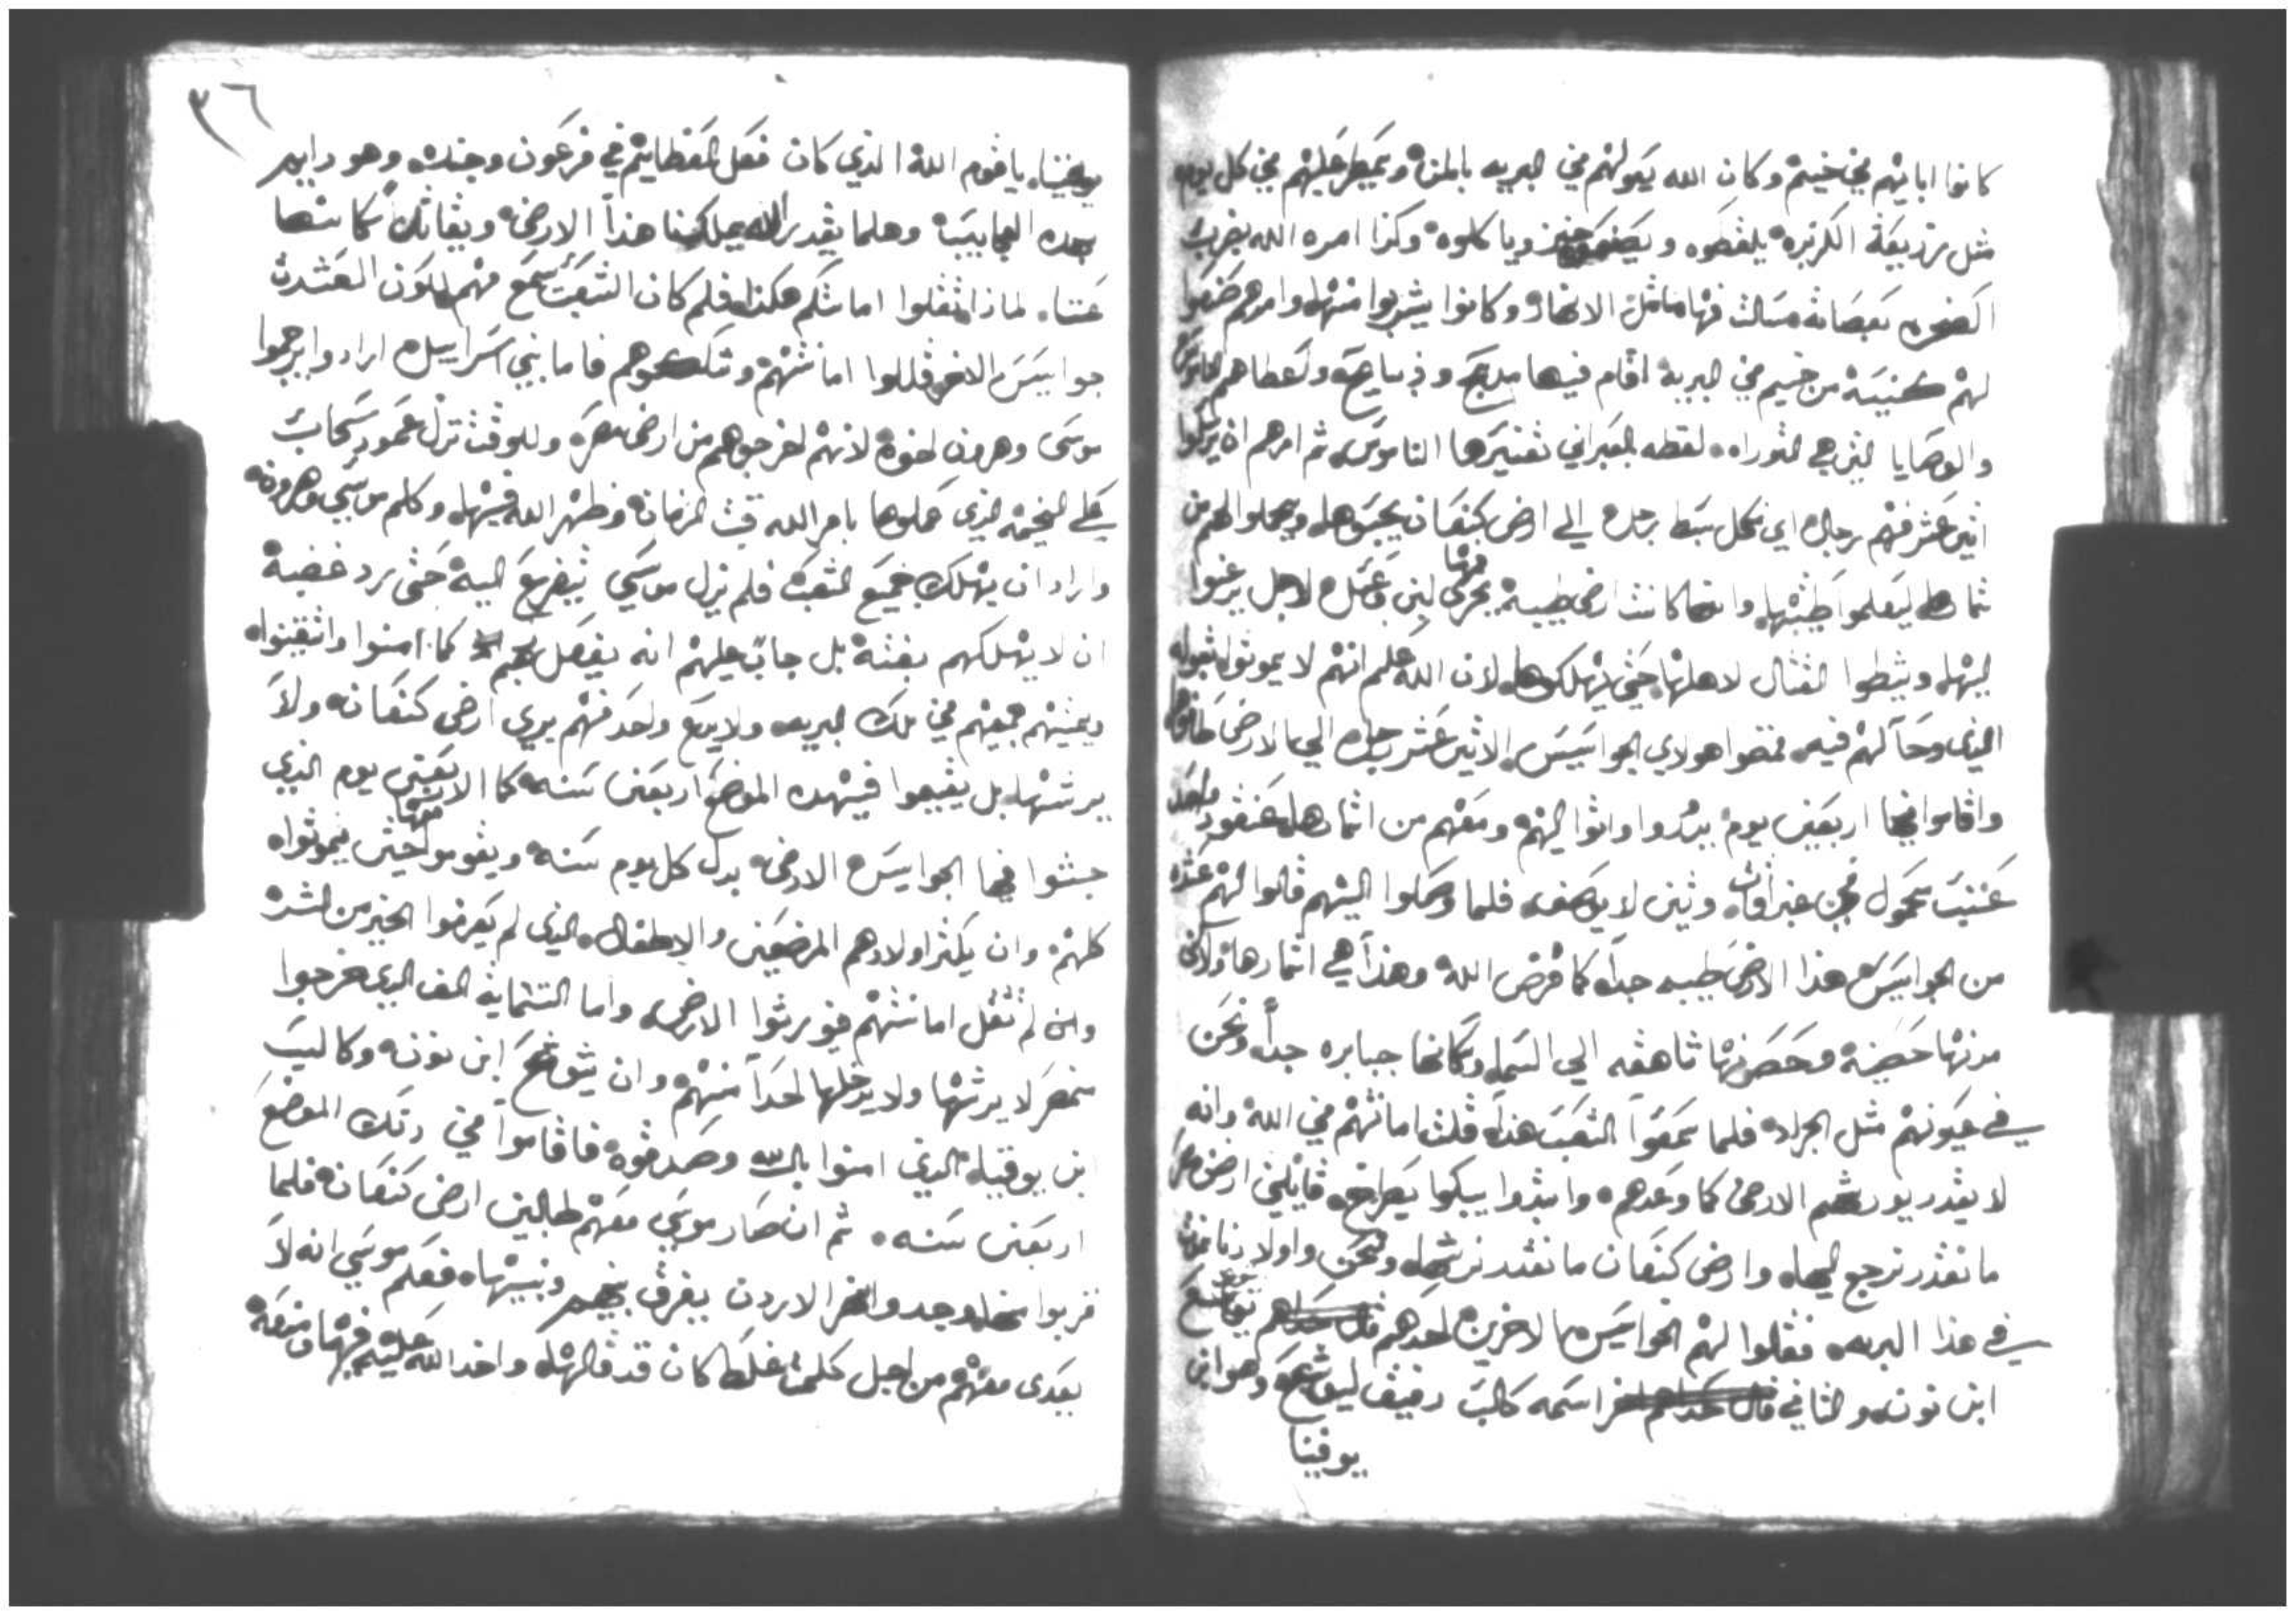 كانوا اباتهم في خيم وكان الله يعولهم في البريه بالمن ويمطر عليهم في كل يوم
مثل زريعة الكزبره يلقطوه ويصنعوه خبز وياكلوه وكذا امره الله بضرب
الصخره بعصاته فسالت منها مثل الانهار وكانوا يشربوا منها وامرهم صنعوا
لهم كنيسه من خيم في البريه اقام فيها مدبح و دبايح واعطاهم الناموس
والوصايا التي هي التوراه لفظه العبراني تفسيرها الناموس ثم امرهم ان يرسلوا
اثني عشر منهم رجال اي من كل سبط رجل الي ارض كنعان يجسوها ويحملوا لهم من
ثمارها ليعلموا طيبتها وانها كانت ارض طيبه يجري منها لبن وعسل لاجل يرغبوا
اليها وينشطوا لقتال لاهلها حتي يهلكوها لان الله علم انهم لا يموتوا
الذي وعد لهم فيه فمضوا هولاي الجواسيس الاثني عشر رجل الي الارض
واقاموا فيها اربعين يوم يدوروا واتوا اليهم ومعهم من اثمارها عنقود واحد
عنب محمول في وتين لا يوصف فلما وصلوا اليهم قالوا لهم عشره
من الجواسيس هذا الارض طيبه جدا كما فرض الله وهذا هي اثمارها ولاكن
مدنها حصينه وحصونها شاهقه الي السما وسكانها جبابره جدا ونحن
في عيونهم مثل الجراد فلما سمعوا الشعب هذا قلت امانتهم في الله وانه
لا يقدر يورثهم الارض كما وعدهم وابتدوا يبكوا بصراخ قايلين ارض مصر
ما نقدر نرجع اليها وارض كنعان ما نقدر نرثها ونحن واولادنا نموت
في هذا البريه فقالوا لهم الجواسيس الاخرين احدهم يوشع
ابن نون والثاني اسمه كالب رفيق ليوشع وهو ابن
يوفنيا
٣٦
يوفنيا يا قوم الله الذي كان فعل العظايم في فرعون وجنده وهو
بهده العجايب وهلما يقدر الله يملكنا هذا الارض ويقاتل سكانها
عننا لماذا تقلوا امانتكم هكذا فلم كان الشعب يسمع منهم لكون العشره
جواسيس الاخر قللوا امانتهم وشككوهم فاما بني اسراييل ارادوا يرجموا
موسي وهرون اخوه لانهم اخرجوهم من ارض مصر وللوقت نزل عمود سحاب
علي الخيمه الذي عملوها بامر الله قبت الزمان وظهر الله فيها وكلم موسي وهرون
واراد ان يهلك جميع الشعب فلم يزل موسي يتضرع اليه حتي رد غضبه
ان لا يهلكهم بغته بل جاب عليهم انه يفعل بهم كما امنوا واتيقنوا
ويميتهم جميعهم في تلك البريه ولا يدع واحد منهم يري ارض كنعان ولا
يرثها بل يقيموا في هده الموضع اربعين سنه كما الاربعين يوم الذي
جسوا فيها الجواسيس الارض بدل كل يوم سنه ويقوموا فيها حتي يموتوا
كلهم وان يكثر اولادهم المرضعين والاطفال الذي لم يعرفوا الخير من الشر
وان لم تقل امانتهم فيورثوا الارض واما الستماية الف الذي خرجوا
من مصر لا يرثها ولا يدخلها احدا منهم وان يشوع ابن نون وكاليب
ابن يوفنيا الذي امنوا بالله وصدقوه فاقاموا في دلك الموضع
اربعين سنه ثم ان صار موسي معهم طالبين ارض كنعان فلما
قربوا منها وجدوا نهر الاردن يفرق بينهم وبينها فعلم موسي انه لا
يعدي معهم من اجل كلمت غلط كان قد قالها واخد الله عليه فيها ومنعه